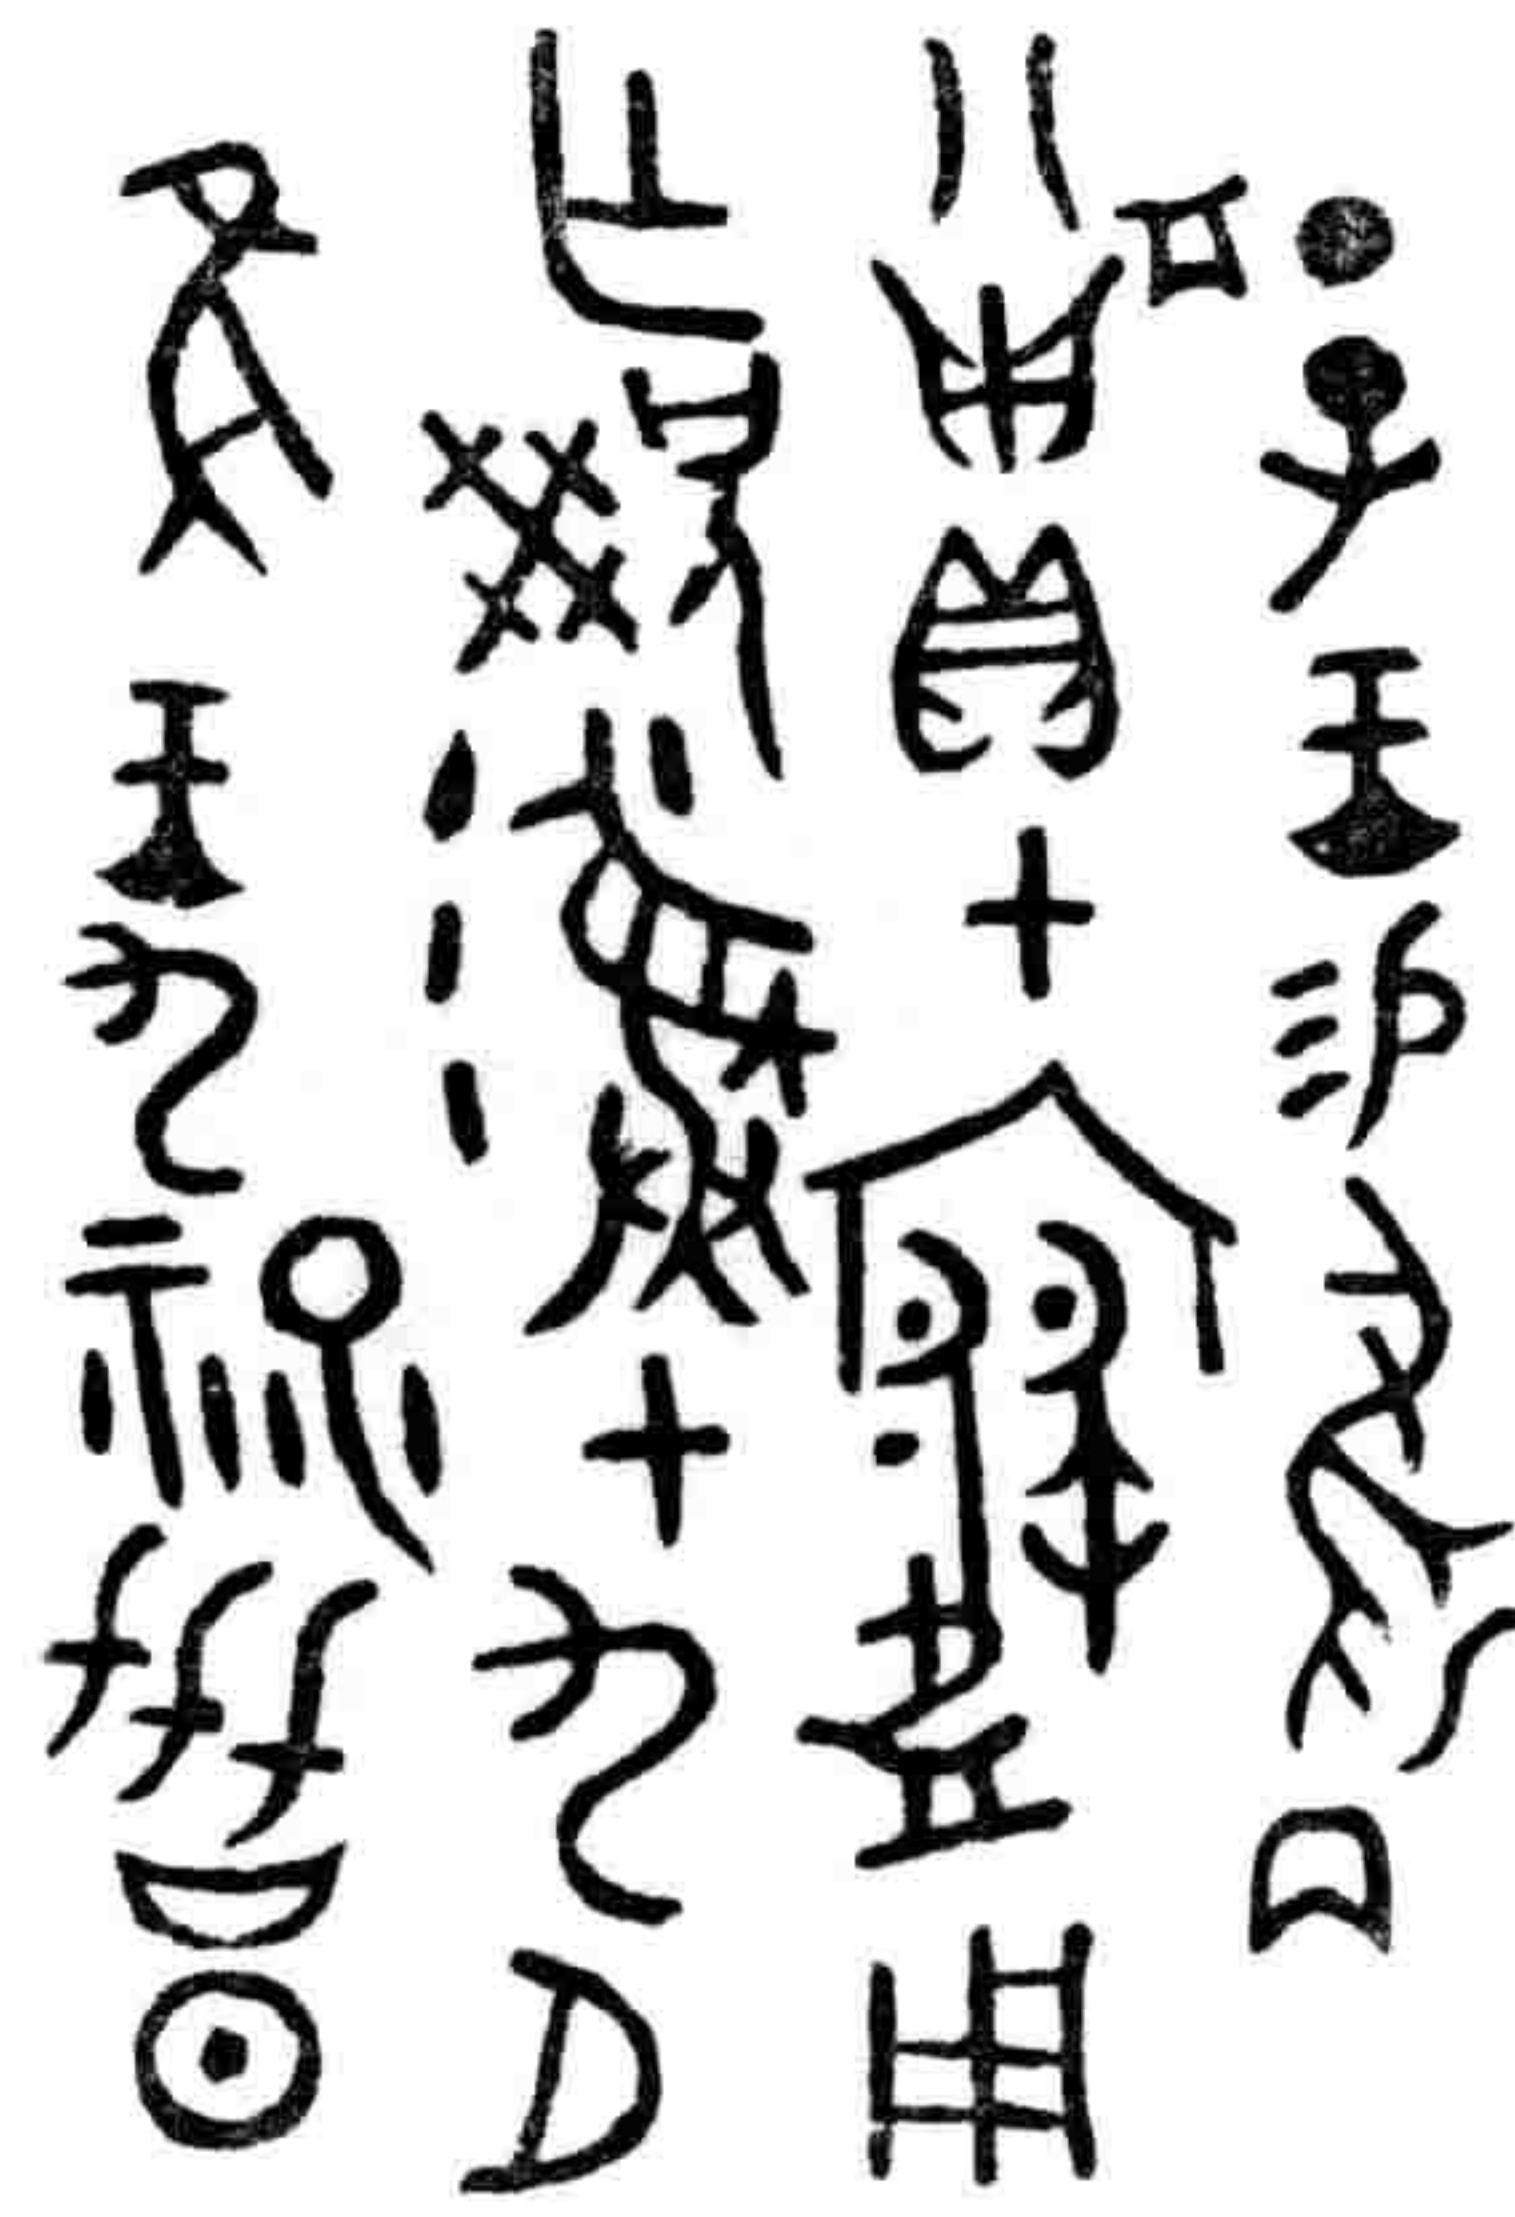 丁巳王易巂
㕯貝才用
乍兄癸彝才九月
隹王九祀劦日